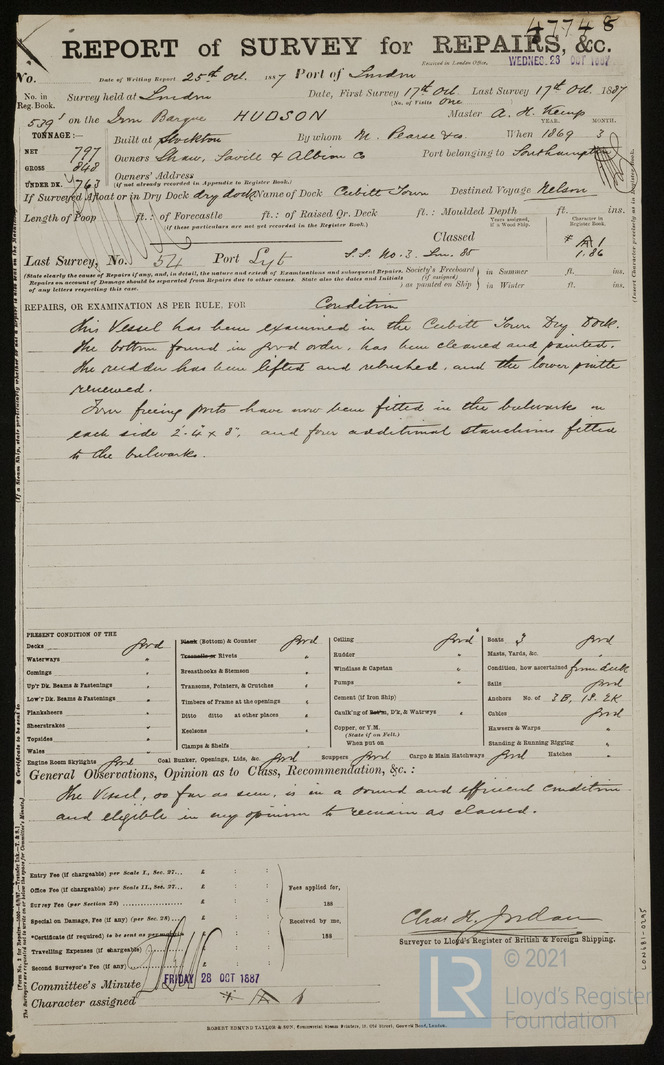 47748
REPORT of SURVEY for REPAIRS, &c.
Received in London Office, WEDNES. 26 OCT 1887
No. Date of Writing Report 25th Oct. 1887 Port of London
No. in Reg. Book. Survey held at London Date, First Survey 17th Oct. Last Survey 17th Oct. 1887
(No. of Visits one
539 on the Iron Barque HUDSON Master A. H. Kemp
TONNAGE:— Built at Stockton By whom M. Pearse & Co. When 1869 YEAR. 3 MONTH.
NET 797 Owners Shaw, Savill & Albion Co Port belonging to Southampton
GROSS 848 Owners' Address
UNDER DK. 763 (if not already recorded in Appendix to Register Book.)
If Surveyed Afloat or in Dry Dock dry dock Name of Dock Cubitt Town Destined Voyage Nelson
Length of Poop ft.: of Forecastle ft.: of Raised Qr. Deck ft.: Moulded Depth ft. ins.
(if these particulars are not yet recorded in the Register Book.) Years assigned, if a Wood Ship. Character in Register Book.
Classed * A 1
Last Survey, No. 54 Port Lyt S.S. No. 3. Lon. 85 1.86
(State clearly the cause of Repairs if any, and, in detail, the nature and extent of Examinations and subsequent Repairs. Society's Freeboard in Summer ft. ins.
Repairs on account of Damage should be separated from Repairs due to other causes. State also the dates and Initials (if assigned)
of any letters respecting this case. as painted on Ship in Winter ft. ins.
REPAIRS, OR EXAMINATION AS PER RULE, FOR Condition
This Vessel has been examined in the Cubitt Town Dry Dock.
The bottom found in good order, has been cleaned and painted.
The rudder has been lifted and rebushed, and the lower pintle
renewed.
Four freeing ports have now been fitted in the bulwarks on
each side 2'-4" x 8", and four additional stanchions fitted
to the bulwarks.
PRESENT CONDITION OF THE
Decks good
Waterways "
Comings "
Up'r Dk. Beams & Fastenings "
Low'r Dk. Beams & Fastenings "
Planksheers "
Sheerstrakes "
Topsides "
Wales "
Plank (Bottom) & Counter good
Treenails or Rivets "
Breasthooks & Stemson "
Transoms, Pointers, & Crutches "
Timbers of Frame at the openings "
Ditto ditto at other places "
Keelsons "
Clamps & Shelfs "
Ceiling good
Rudder "
Windlass & Capstan "
Pumps "
Cement (if Iron Ship)
Caulk'ng of Bottom, D'k, & Watrwys
Copper, or Y.M.
(State if on Felt.)
When put on
Boats 3 good
Masts, Yards, &c. "
Condition, how ascertained from deck
Sails good
Anchors No. of 3 B, 1 S. 2 K
Cables good
Hawsers & Warps "
Standing & Running Rigging "
Engine Room Skylights good Coal Bunker, Openings, Lids, &c. good Scuppers good Cargo & Main Hatchways good Hatches "
General Observations, Opinion as to Class, Recommendation, &c.:
The Vessel, so far as seen, is in a sound and efficient condition
and eligible in my opinion to remain as classed.
Entry Fee (if chargeable) per Scale I., Sec. 27... £ : :
Office Fee (if chargeable) per Scale II., Sec. 27... £ : :
Survey Fee (per Section 28) £ : :
Special on Damage, Fee (if any) (per Sec. 28) £ : :
*Certificate (if required) to be sent as per margin £ : :
Travelling Expenses (if chargeable) £ : :
Second Surveyor's Fee (if any) £ : :
Fees applied for,
188
Received by me,
188
Chas. H. Jordan
Surveyor to Lloyd's Register of British & Foreign Shipping.
Committee's Minute FRIDAY 28 OCT 1887
Character assigned * A 1
ROBERT EDMUND TAYLOR & SON, Commercial Steam Printers, 19, Old Street, Goswell Road, London.
* Certificate to be sent to
LON681-0295
LR
© 2021
Lloyd's Register
Foundation